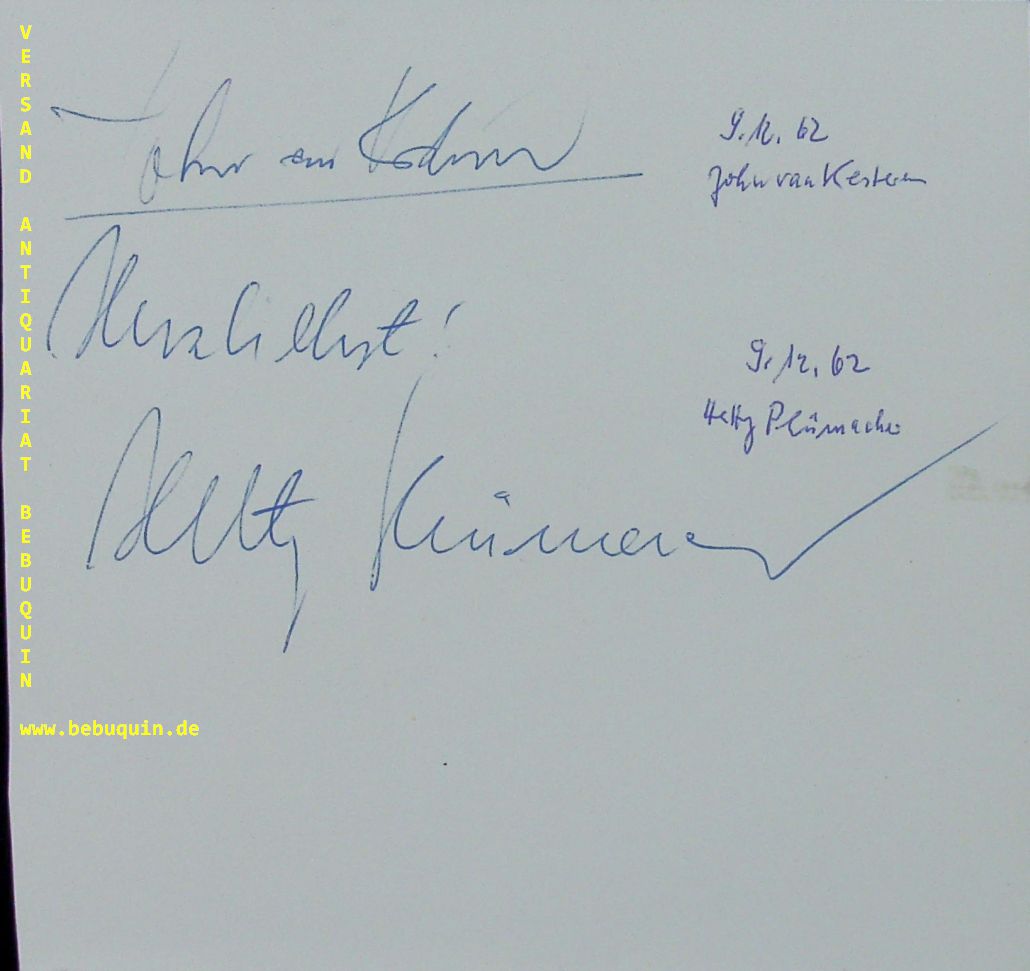 John van Kesteren
9.12.62
John van Kesteren
Herzlichst!
9.12.62
Hetty Plümacher
Hetty Plümacher
VERSAND ANTIQUARIAT BEBUQUIN
www.bebuquin.de